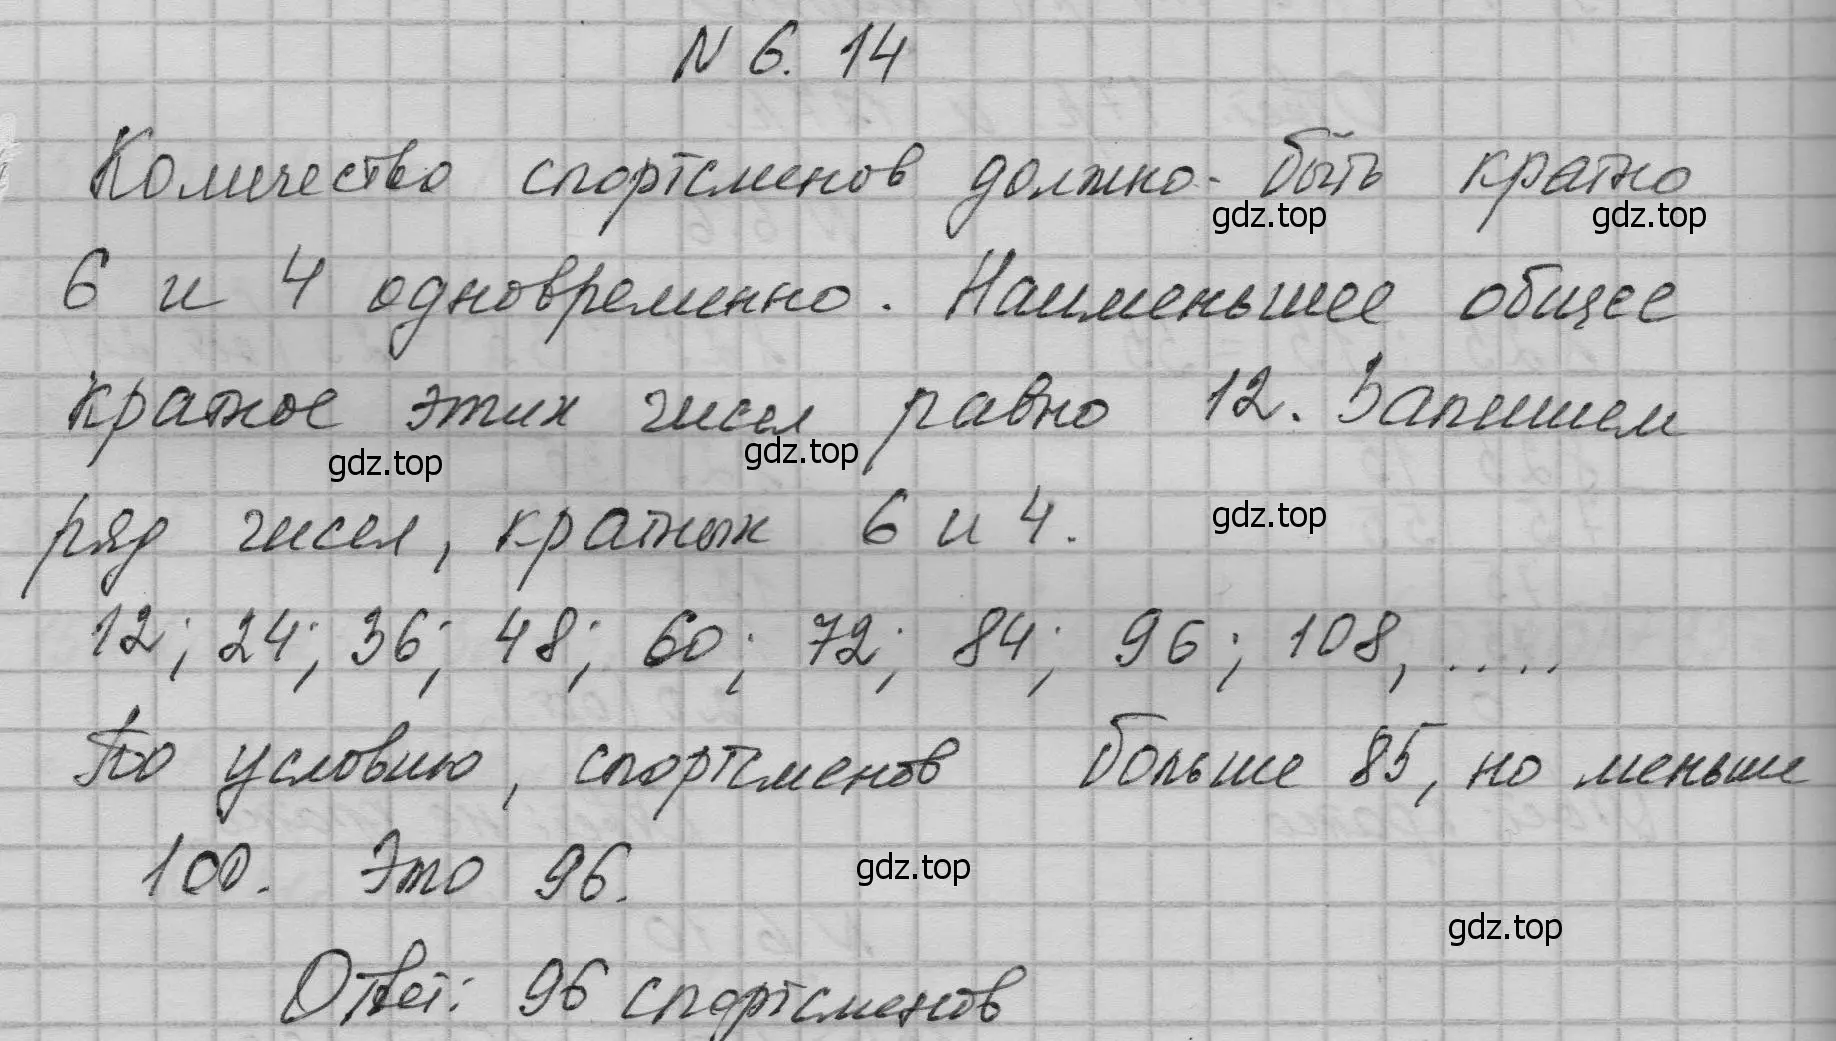 N 6. 14
Количество спортсменов должно быть кратно
gdz.top gdz.top
6 и 4 одновременно. Наименьшее общее
кратное этих чисел равно 12. Запишем
gdz.top gdz.top
ряд чисел, кратных 6 и 4.
gdz.top
12; 24; 36; 48; 60; 72; 84; 96; 108, .....
По условию, спортсменов больше 85, но меньше
100. Это 96.
gdz.top
gdz.top
Ответ: 96 спортсменов